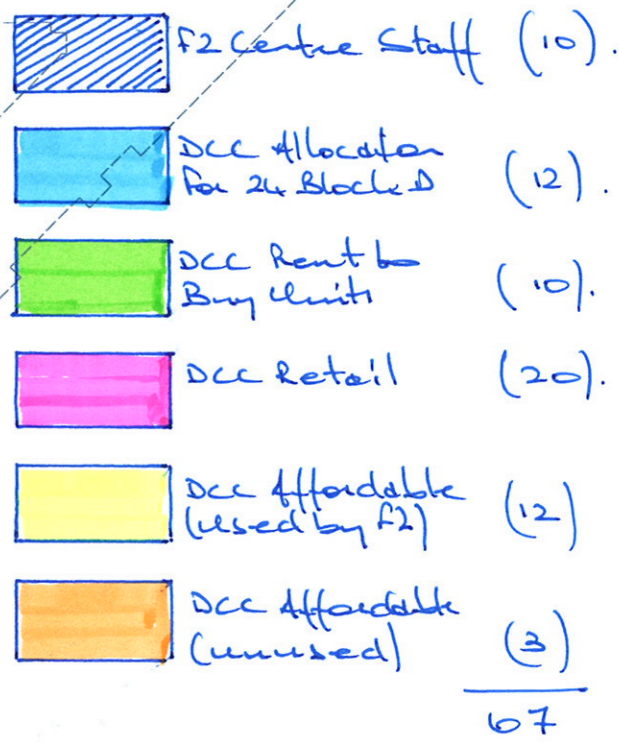 F2 Centre Staff (10).
DCC Allocation
For 24 Block D (12).
DCC Rent to
Buy Units (10).
DCC Retail (20).
DCC Affordable
(used by F2) (12)
DCC Affordable
(unused) (3)
67